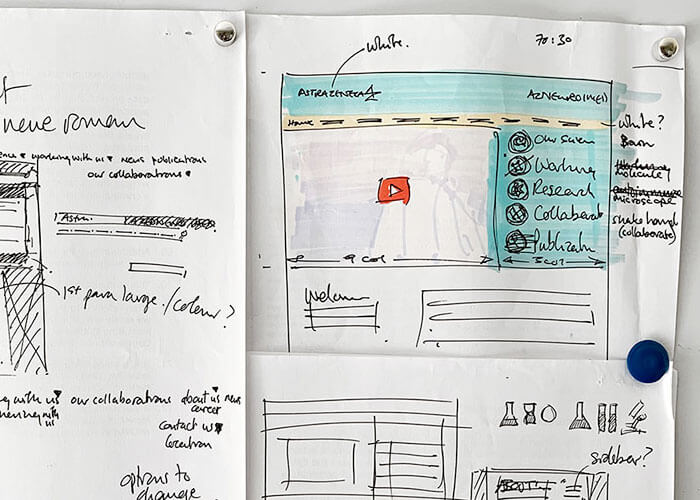 neue roman
working with us news publications
our collaborations
1st para large./colour?
our collaborations about us news
career
contact us
location
options to
change
white.
70:30
ASTRAZENECA
Home
white?
Our Scien
Working
Research
Collaborat
Publicatn
Brain
molecule
microscope
shake hands
(collaborate)
9 col
3 col
Welcome
sidebar?